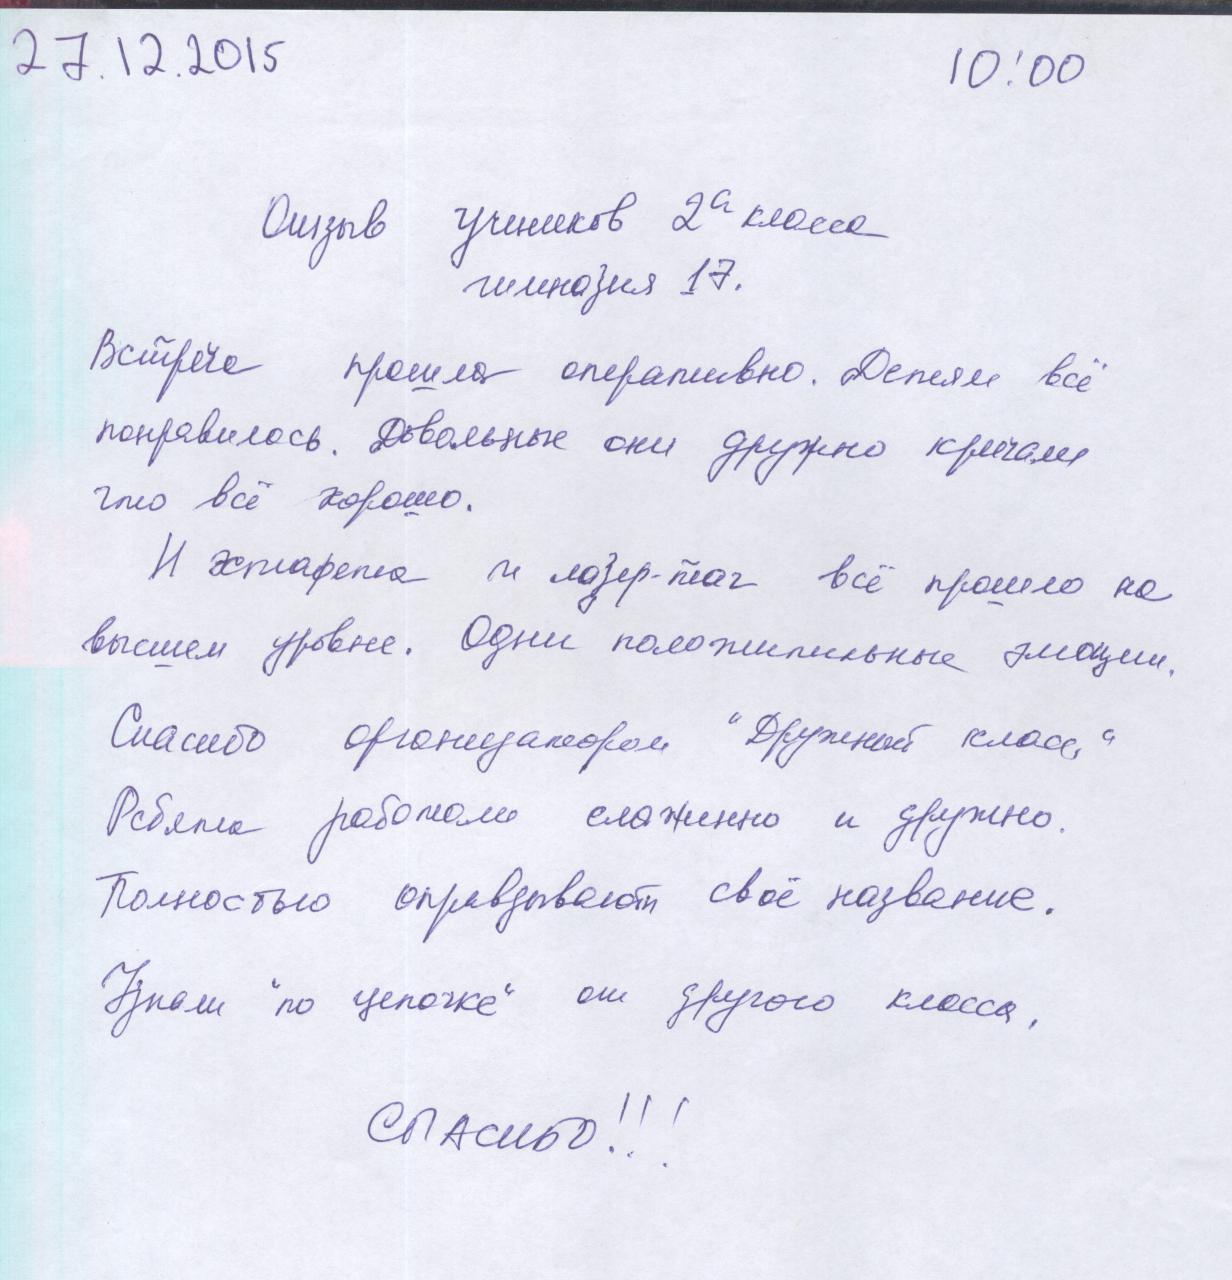 27.12.2015 10:00
Отзыв учеников 2а класса
гимназия 17.
Встреча прошла оперативно. Детям всё
понравилось. Довольные они дружно кричали
что всё хорошо.
И эстафета и лазер-таг всё прошло на
высшем уровне. Одни положительные эмоции.
Спасибо организаторам "Дружный класс"
Ребята работали слаженно и дружно.
Полностью оправдывают своё название.
Узнали "по цепочке" от другого класса.
СПАСИБО!!!